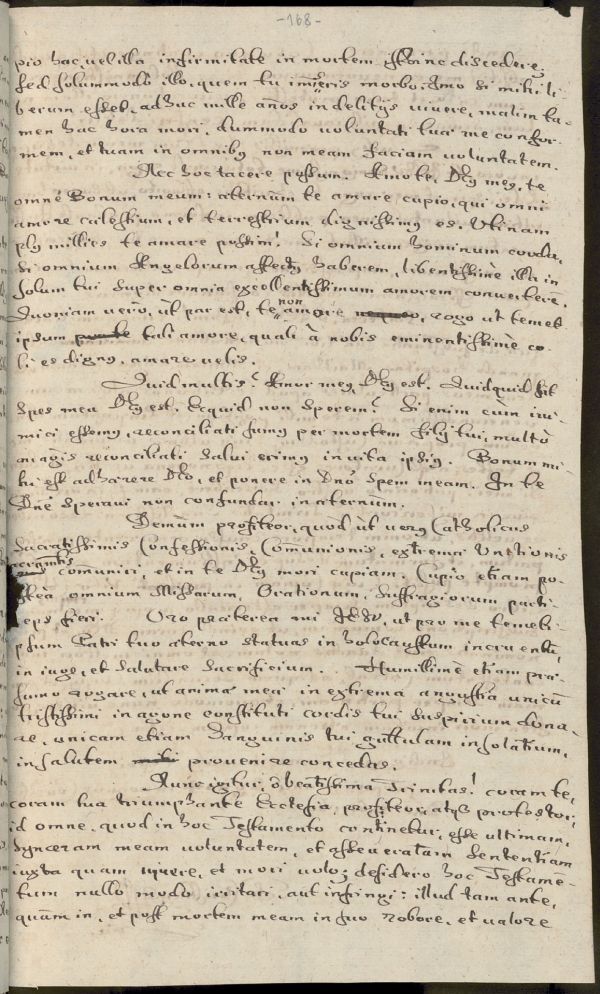 -168-
pio hac, uel illa infirmitate in mortem hinc discedere,
sed solummodò illo, quem tu im̃iseris morbo. Imo si mihi li-
berum esset, adhuc mille años in delitijs uiuere, malim ta-
men hac hora mori, dummodo uoluntati tuæ me confor-
mem, et tuam in omnibꝯ non meam faciam uoluntatem.
Nec hoc tacere possum. Amo te, Dꝯ meꝯ, te
omnè Bonum meum: æternùm te amare cupio, qui omni
amore cælestium, et terrestrium dignissimꝯ es. Utinam
plꝯ millies te amare possim! Si omnium hominum corda,
si omnium Angelorum affectꝯ haberem, libentissimè illa in
solum tui super omnia excellentissimum amorem conuertere.
Quoniam uerò, ùt par est, te non amare, rogo ut temet
ipsum tali amore, quali à nobis eminentissimè co-
li es dignꝯ, amare uelis.
Quid multis? Amor meꝯ, Dꝯ est. Quidquid sit
Spes mea Dꝯ est. Ecquid non sperem? Si enim cum ini-
mici essemꝯ, reconciliati sumꝯ per mortem filij tui, multò
magis reconciliati salui erimꝯ in uita ipsiꝯ. Bonum mi-
hi est adhærere Deo, et ponere in Dño spem meam. In te
Dñe speraui non confundar in æternùm.
Demùm profiteor, quod ùt uerꝯ Catholicus
Sacratissimis Confessionis, Com̃unionis, extremæ Unctionis
muniri, et in te Dꝯ mori cupiam. Cupio etiam po-
stea omnium Missarum, Orationum, Suffragiorum parti-
ceps fieri. Oro præterea mi Jesu, ut pro me temeti-
psum Patri tuo æterno statuas in holocaustum incruentũ,
in iuge, et salutare sacrificium. Humillimè etiam præ-
sumo rogare, ut animæ meæ in extrema angustia unicũ
tristissimi in agone constituti cordis tui suspirium dona-
re, unicam etiam Sanguinis tui guttulam in solatium,
in salutem prouenire concedas.
Nunc igitur, ò beatissima Trinitas! coram te,
coram tua triumphante Ecclesia, profiteor, atqꝫ protestor,
id omne, quod in hoc Testamento continetur, esse ultimam,
synceram meam uoluntatem, et asseueratam sententiam
iuxta quam uiuere, et mori uolo; desidero hoc Testamẽ-
tum nullo modo irritari, aut infringi: illud tam ante,
quàm in, et post mortem meam in suo robore, et ualore